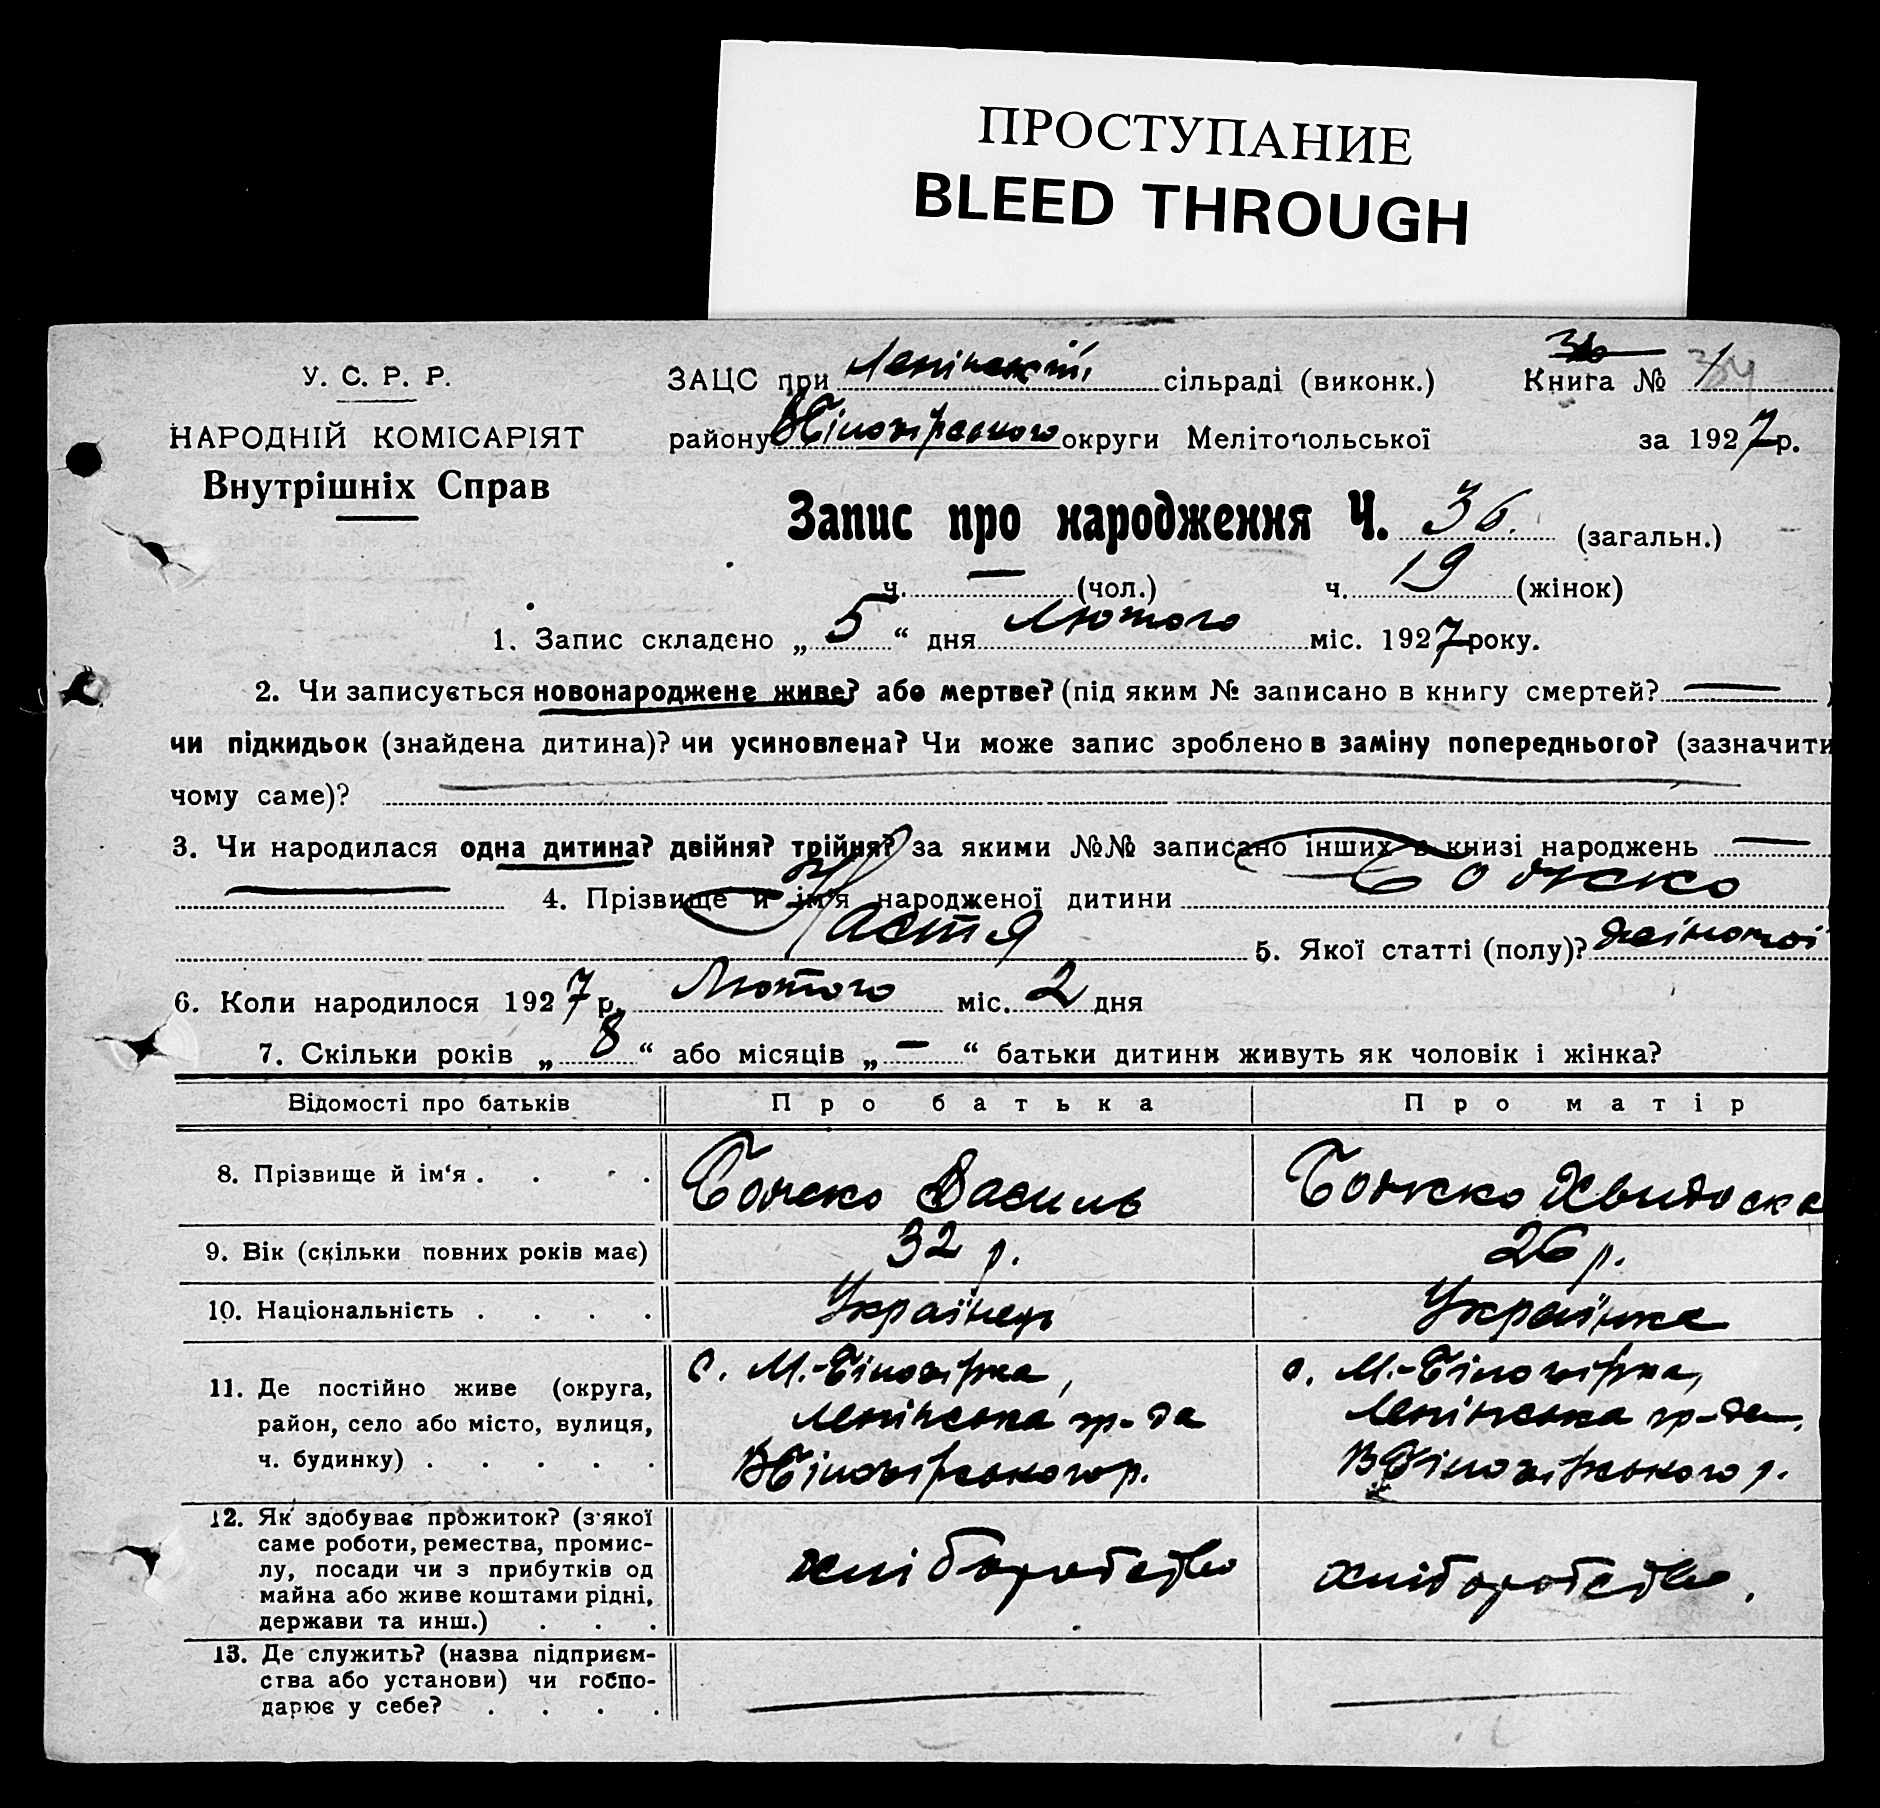 ПРОСТУПАНИЕ
BLEED THROUGH
У. С. Р. Р.
НАРОДНІЙ КОМІСАРІЯТ
Внутрішніх Справ
ЗАЦС при Ленінській сільраді (виконк.) Книга № 1
району ВБілозірського округи Мелітопольської за 1927 р.
Запис про народження Ч. 36. (загальн.)
ч. — (чол.) ч. 19 (жінок)
1. Запис складено „ 5 “ дня Лютого міс. 1927 року.
2. Чи записується новонароджене живе? або мертве? (під яким № записано в книгу смертей? — )
чи підкидьок (знайдена дитина)? чи усиновлена? Чи може запис зроблено в заміну попереднього? (зазначити
чому саме)?
3. Чи народилася одна дитина? двійня? трійня? за якими №№ записано інших в книзі народжень —
— 4. Прізвище й ім'я народженої дитини Божко
Настя 5. Якої статті (полу)? жіночої
6. Коли народилося 1927 р. Лютого міс. 2 дня
7. Скільки років „ 8 “ або місяців „ — “ батьки дитини живуть як чоловік і жінка?
Відомості про батьків Про батька Про матір
8. Прізвище й ім'я . . . . Божко Василь Божко Хвидоска
9. Вік (скільки повних років має) 32 р. 26 р.
10. Національність . . . . Українець Українка
11. Де постійно живе (округа,
район, село або місто, вулиця,
ч. будинку) . . . . .
с. М.-Білозірка,
Ленінська гр-да
ВБілозірського р.
с. М.-Білозірка,
Ленінська гр-да,
ВБілозірського р.
12. Як здобуває прожиток? (з якої
саме роботи, ремества, промис-
лу, посади чи з прибутків од
майна або живе коштами рідні,
держави та инш.) . . .
хліборобство
хліборобство.
13. Де служить? (назва підприєм-
ства або установи) чи госпо-
дарює у себе? . . . .